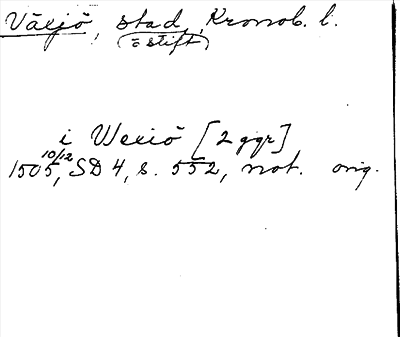 Växjö, stad, Kronob. l.
(o stift)
i Wexiö [2 ggr]
1505 10/12, SD 4, s. 552, not. orig.